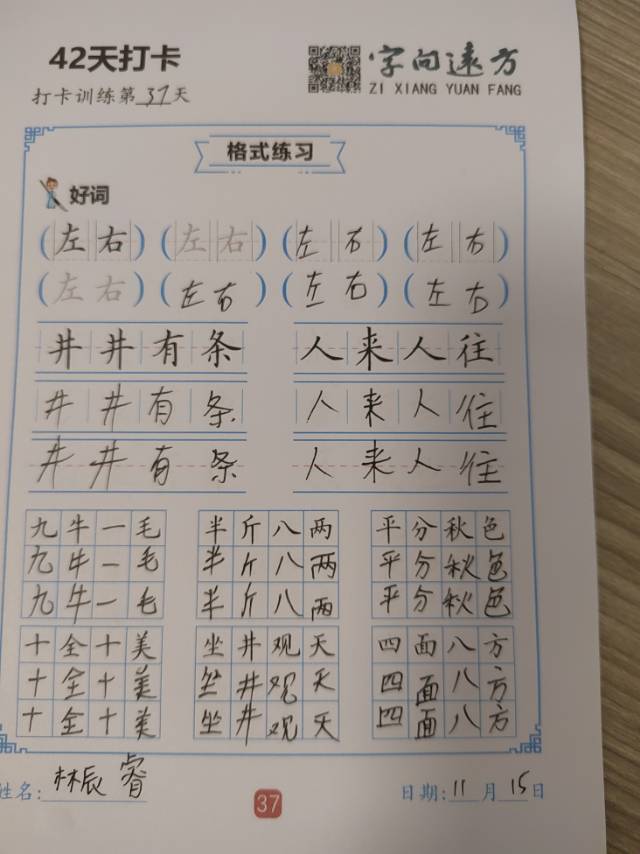 42天打卡
字向遠方
打卡训练第37天
ZI XIANG YUAN FANG
格式练习
好词
(左右) (左右) (左右) (左右)
(左右) (左右) (左右) (左右)
井井有条 人来人往
井井有条 人来人往
井井有条 人来人往
九牛一毛 半斤八两 平分秋色
九牛一毛 半斤八两 平分秋色
九牛一毛 半斤八两 平分秋色
十全十美 坐井观天 四面八方
十全十美 坐井观天 四面八方
十全十美 坐井观天 四面八方
姓名:林辰睿 37 日期:11月15日